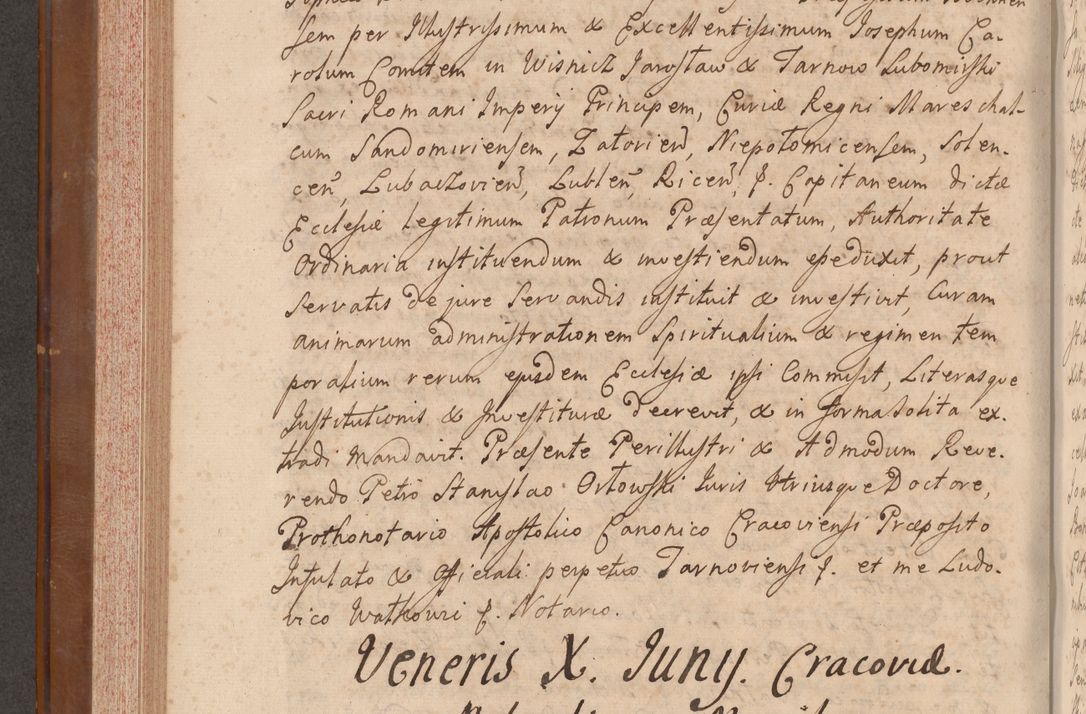 sem per Illustrissimum & Excellentissimum Josephum Ca-
rolum Comitem in Wisnicz Jarosław & Tarnow Lubomirski
Sacri Romani Imperij Principem, Curiæ Regni Mareschal-
cum Sandomiriensem, Zatorien, Niepołomicensem, Solen-
cen, Lubaczovien, Lublen, Ricen, &. Capitaneum dictæ
Ecclesiæ legitimum Patronum Præsentatum, Authoritate
Ordinaria instituendum & investiendum esse duxit, prout
servatis de jure servandis instituit & investivit, Curam
animarum administrationem Spiritualium & regimen tem
poralium rerum ejusdem Ecclesiæ ipsi Commisit, Literasque
Institutionis & Investituræ decrevit, & in forma solita ex-
tradi mandavit. Præsente Perillustri & Admodum Reve-
rendo Petro Stanislao Orłowski Juris Utriusque Doctore,
Prothonotario Apostolico Canonico Cracoviensi Præposito
Infulato & Officiali perpetuo Tarnoviensi &. et me Ludo-
vico &. Notario.
Veneris X. Junij. Cracoviæ.